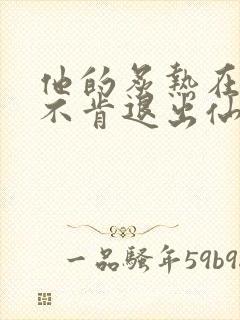 他的炙热在
不肯退出仙
一品骚年59b9